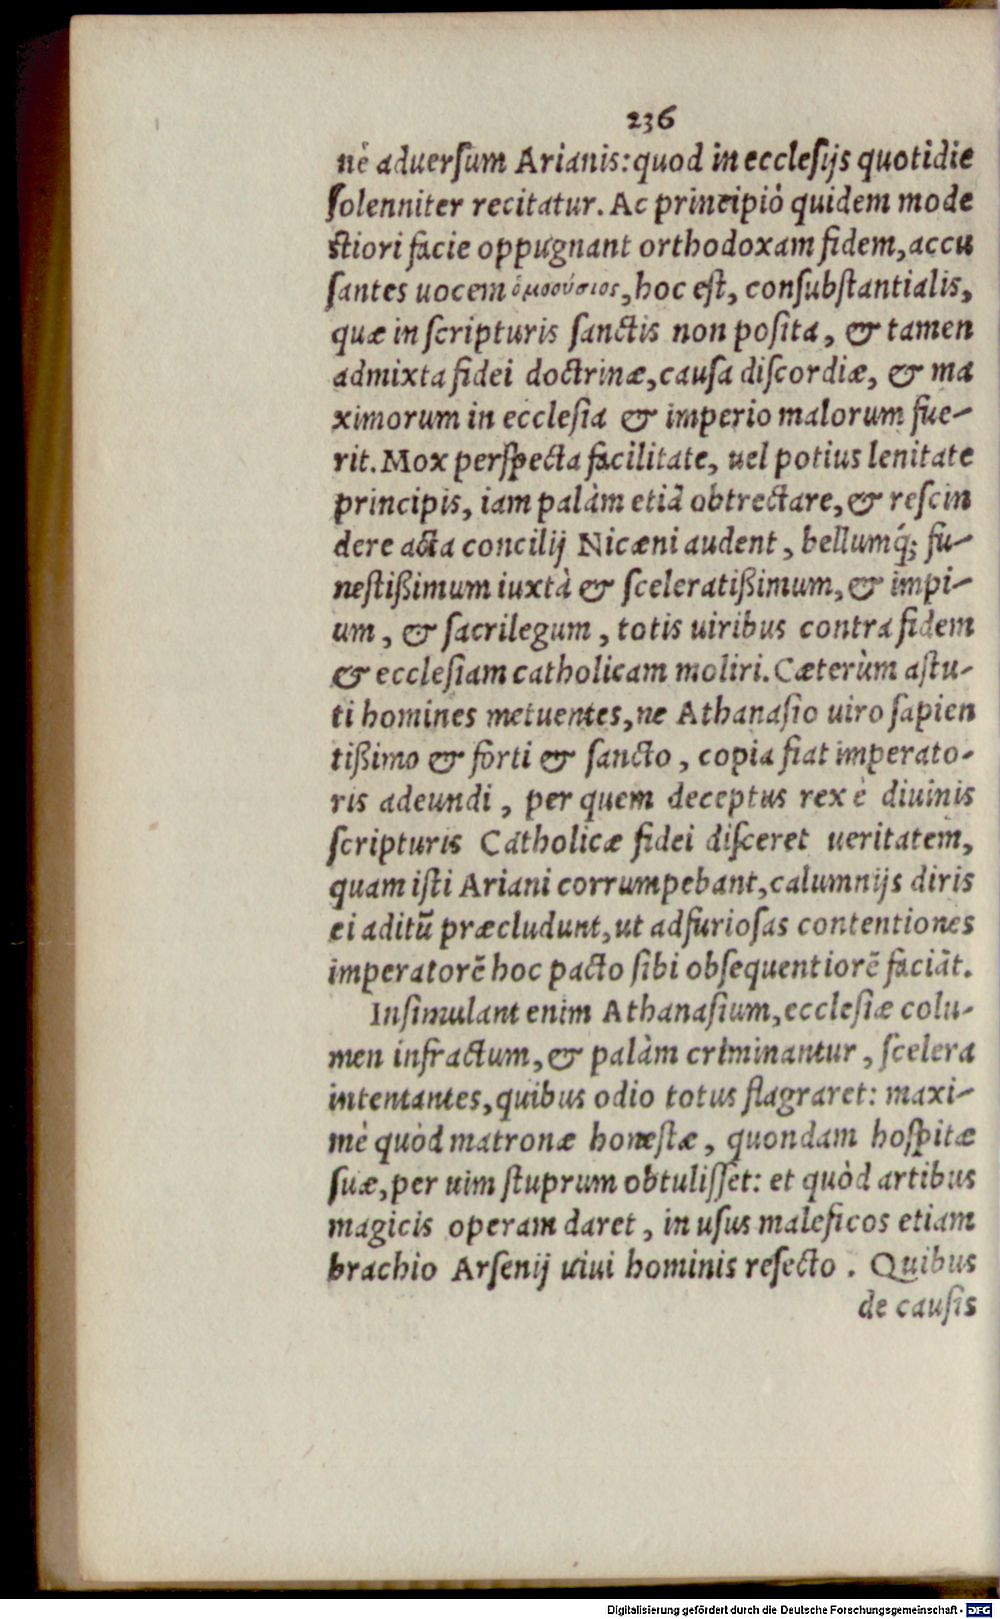 236
nè aduersum Arianis: quod in ecclesijs quotidie
solenniter recitatur. Ac principiò quidem mode
stiori facie oppugnant orthodoxam fidem, accu
santes uocem ὁμοούσιος, hoc est, consubstantialis,
quæ in scripturis sanctis non posita, & tamen
admixta fidei doctrinæ, causa discordiæ, & ma
ximorum in ecclesia & imperio malorum fue-
rit. Mox perspecta facilitate, uel potius lenitate
principis, iam palàm etiā obtrectare, & rescin
dere acta concilij Nicæni audent, bellumq́; fu-
nestißimum iuxtà & sceleratißimum, & impi-
um, & sacrilegum, totis uiribus contra fidem
& ecclesiam catholicam moliri. Cæterùm astu-
ti homines metuentes, ne Athanasio uiro sapien
tißimo & forti & sancto, copia fiat imperato-
ris adeundi, per quem deceptus rex è diuinis
scripturis Catholicæ fidei disceret ueritatem,
quam isti Ariani corrumpebant, calumnijs diris
ei aditū præcludunt, ut ad furiosas contentiones
imperatorē hoc pacto sibi obsequentiorē faciāt.
Insimulant enim Athanasium, ecclesiæ colu-
men infractum, & palàm criminantur, scelera
intentantes, quibus odio totus flagraret: maxi-
mè quòd matronæ honestæ, quondam hospitæ
suæ, per uim stuprum obtulisset: et quòd artibus
magicis operam daret, in usus maleficos etiam
brachio Arsenij uiui hominis resecto. Quibus
de causis
Digitalisierung gefördert durch die Deutsche Forschungsgemeinschaft - DFG